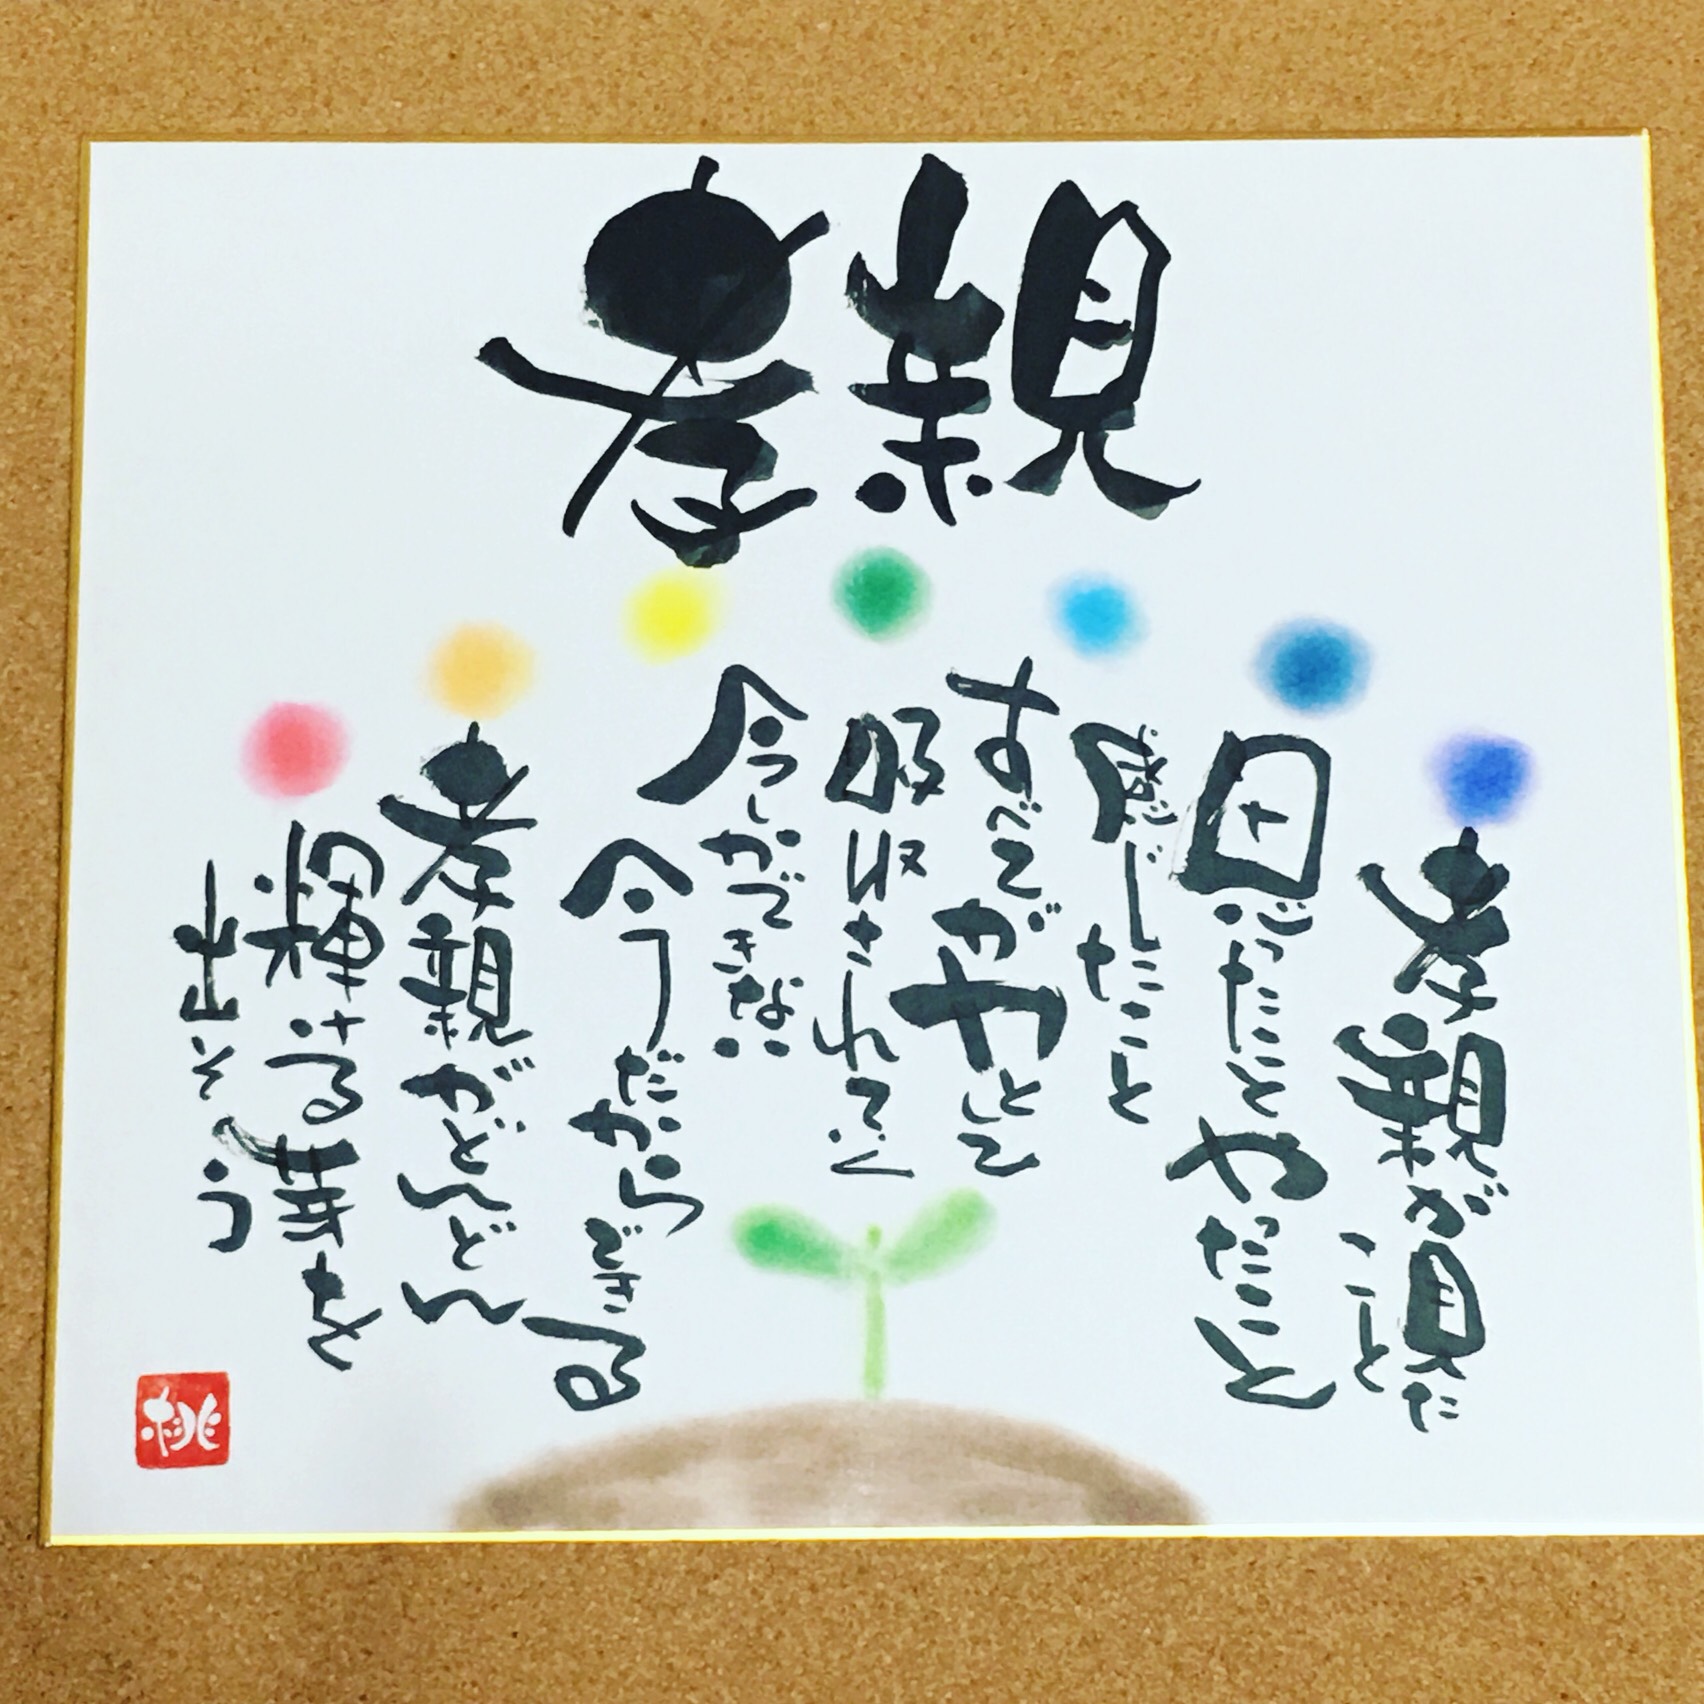 孝親
孝親が見た
こと
思ったこと やったこと
感じたこと
すべてがやとして
吸収されていく
今しかできない
今だからできる
孝親がどんどん
輝ける芽を
出そう
桃